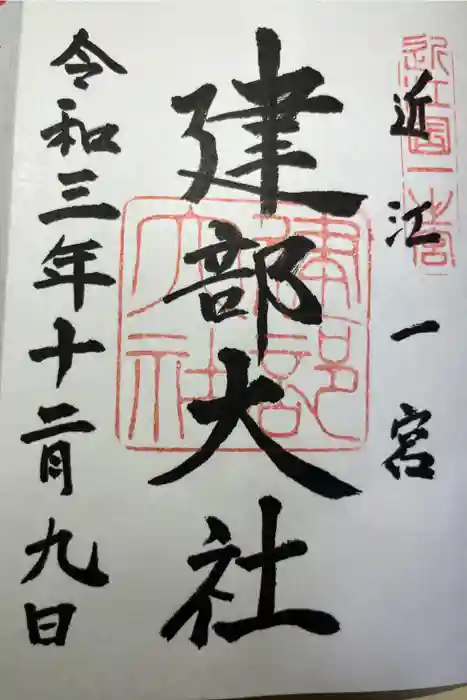 近江一宮
近江國一之宮
建部大社
建部大社
令和三年十二月九日